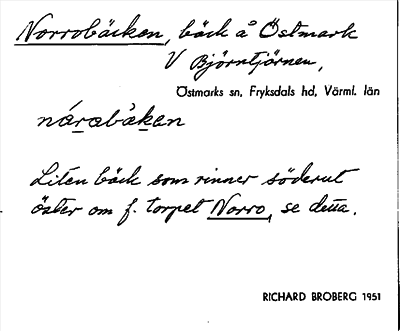 Norrobäcken, bäck å Östmark
V Björntjärnen,
Östmarks sn, Fryksdals hd, Värml. län
nárabàken
Liten bäck som rinner söderut
öster om f. torpet Norro, se detta.
RICHARD BROBERG 1951